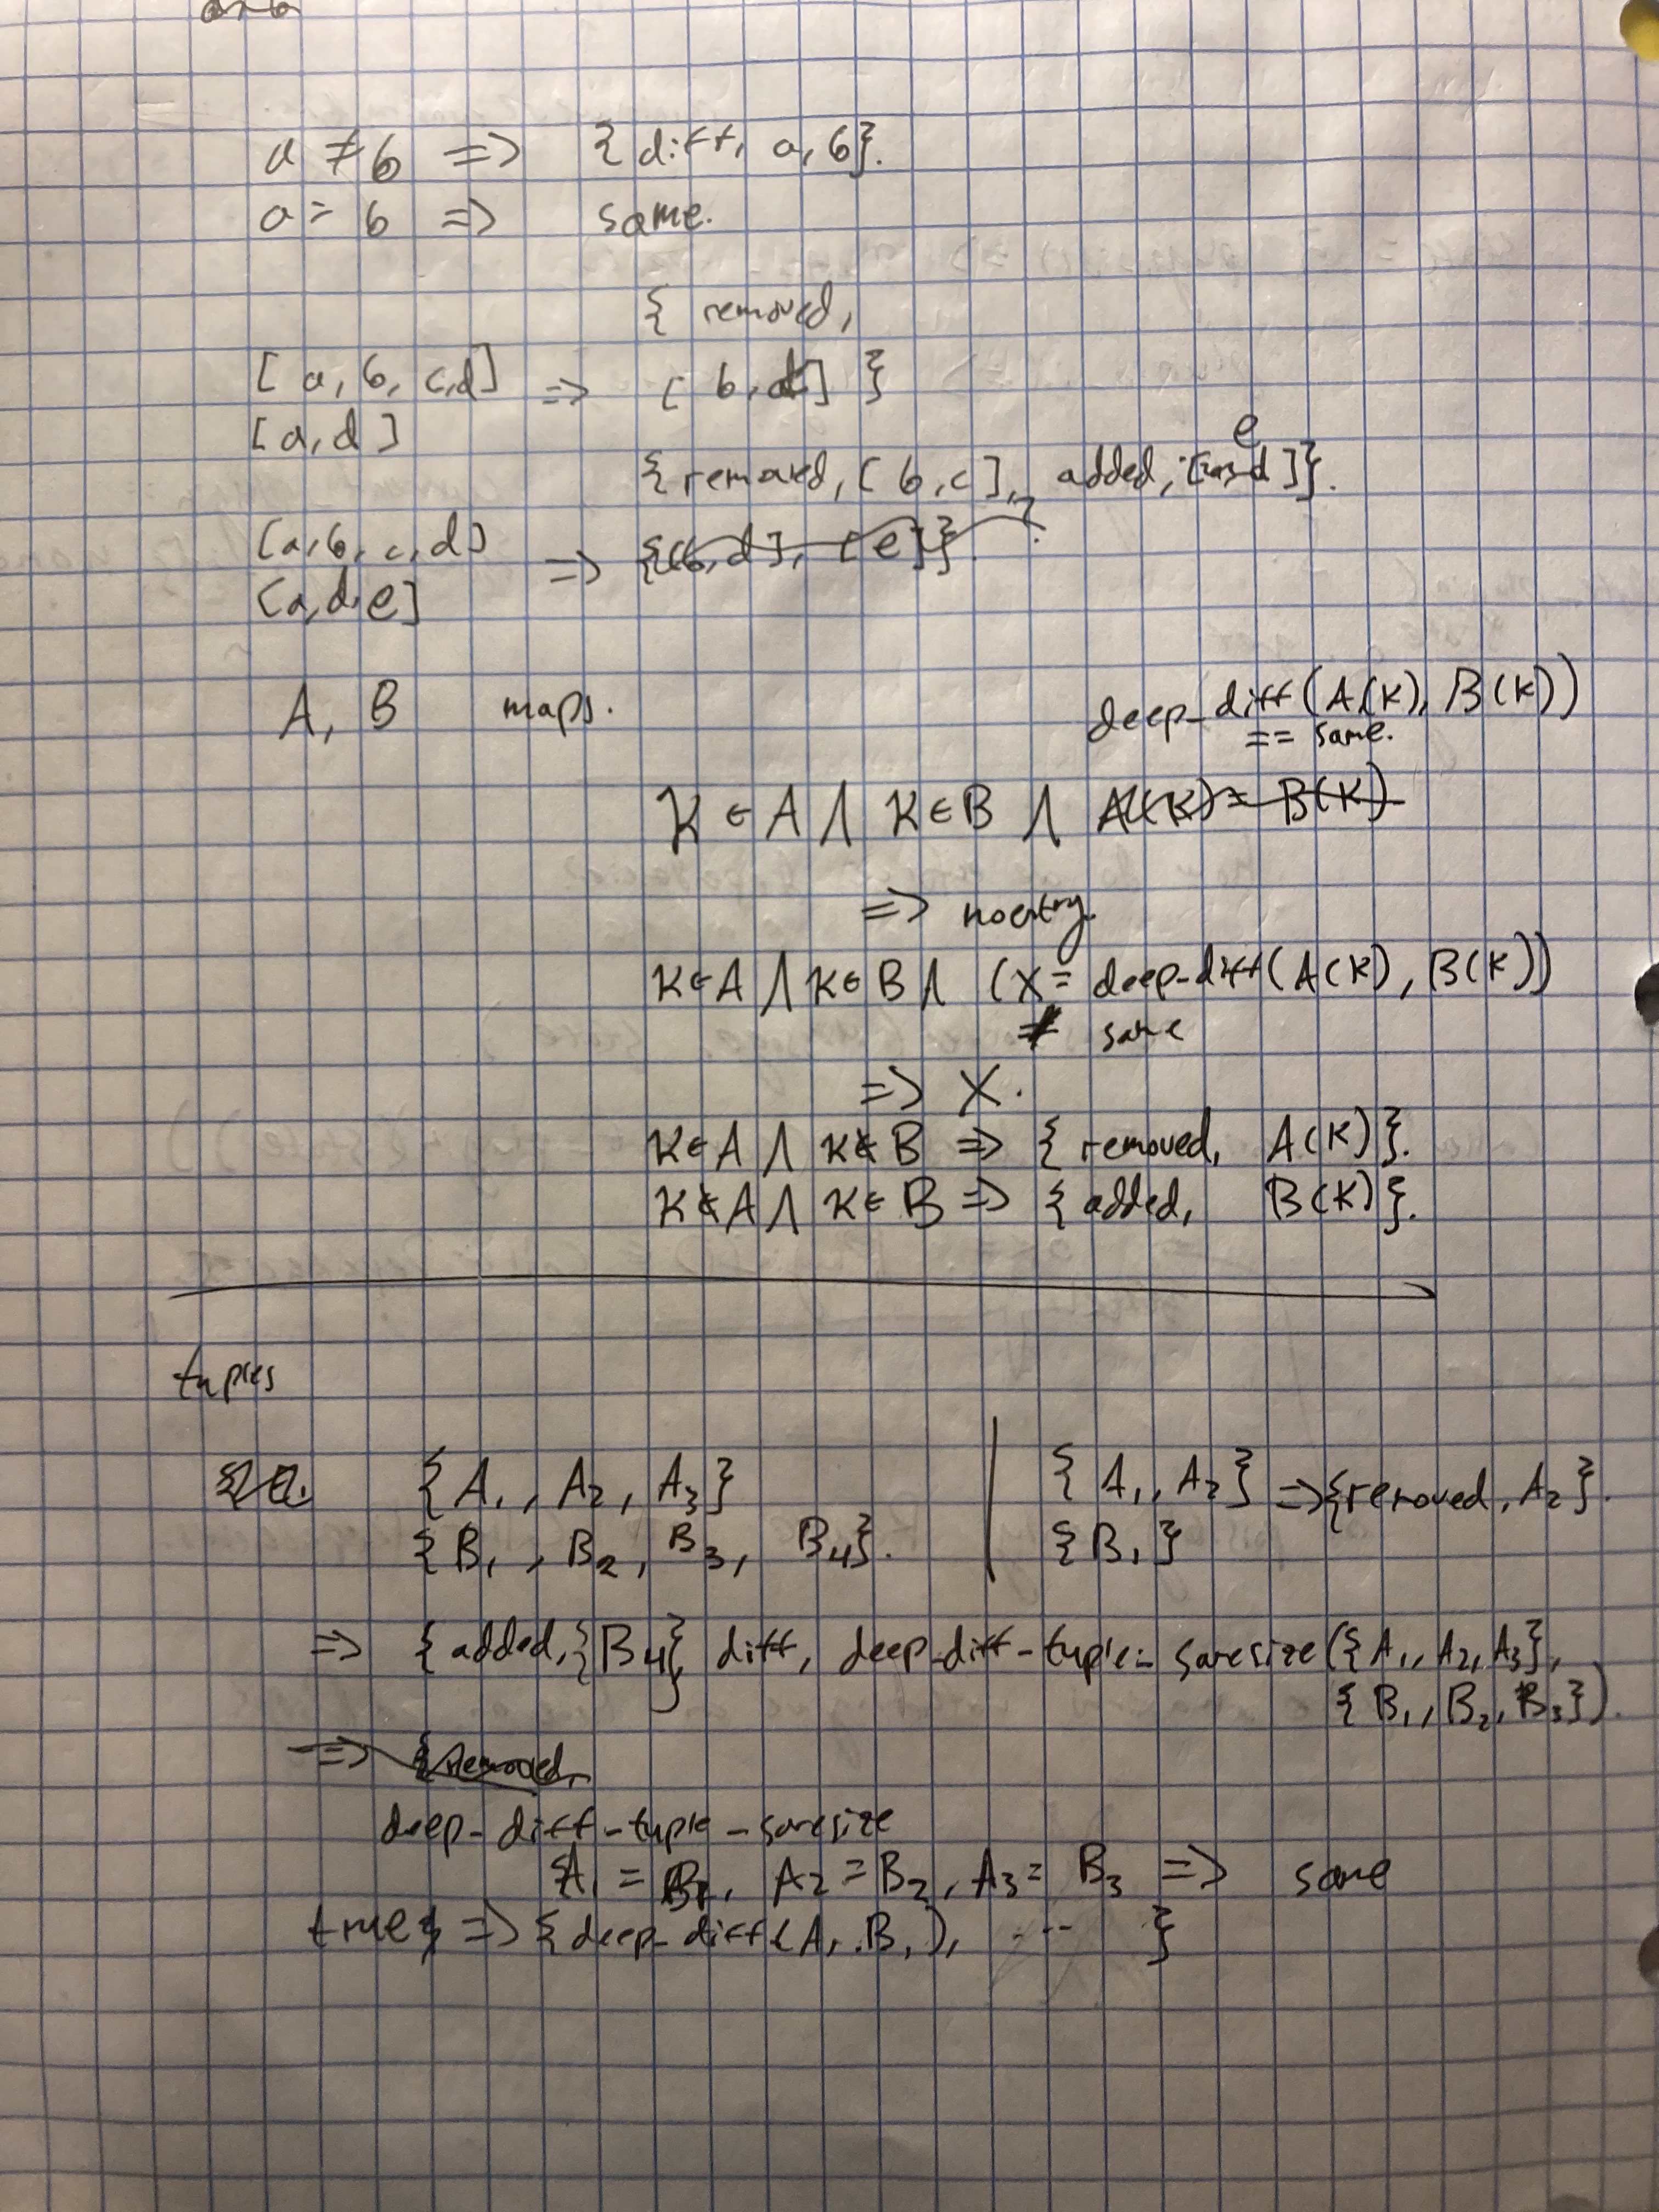 a ≠ b => {diff, a, b}.
a = b => same.
{ removed,
[a, b, c, d] => [b, d] }
[a, d]
e
{removed, [b, c], added, [ d ]}.
[a, b, c, d] => {[b, d], [e]}.
[a, d, e]
A, B maps. deep_diff(A(K), B(K))
== same.
K ∈ A ∧ K ∈ B ∧ A(K) = B(K)
=> no entry.
K ∈ A ∧ K ∈ B ∧ (X = deep_diff(A(K), B(K))
≠ same
=> X.
K ∈ A ∧ K ∉ B => { removed, A(K)}.
K ∉ A ∧ K ∈ B => { added, B(K)}.
tuples
{A₁, A₂, A₃} | { A₁, A₂} => {removed, A₂}.
{B₁, B₂, B₃, B₄}. | {B₁}
=> {added, {B₄}, diff, deep_diff-tuple-samesize({A₁, A₂, A₃},
{B₁, B₂, B₃}).
=> {removed,
deep_diff-tuple-samesize
A₁ = B₁, A₂ = B₂, A₃ = B₃ => same
true => {deep_diff(A₁, B₁), ... }